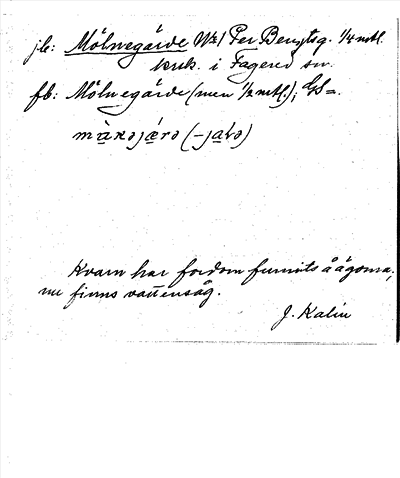 jb: Mölnegärde N:2 Per Bengtsg. 1/4 mtl.
kruk. i Fagered sn.
fb: Mölnegärde (men 1/2 mtl.); GS=.
(-jaʹrə)
Kvarn har fordom funnits å ägorna;
nu finns vattensåg.
J. Kalén